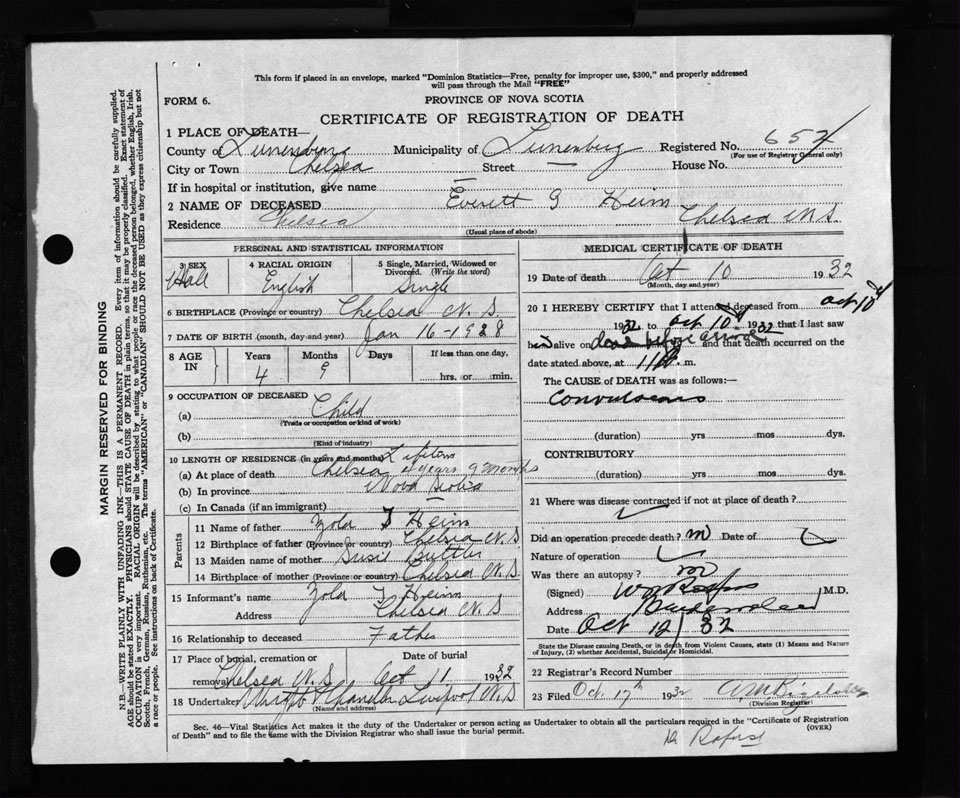 This form if placed in an envelope, marked "Dominion Statistics—Free, penalty for improper use, $300," and properly addressed
will pass through the Mail "FREE"
FORM 6.
PROVINCE OF NOVA SCOTIA
CERTIFICATE OF REGISTRATION OF DEATH
1 PLACE OF DEATH—
County of Lunenburg Municipality of Lunenburg Registered No. 657
(For use of Registrar General only)
City or Town Chelsea Street — House No.
If in hospital or institution, give name —
2 NAME OF DECEASED Everett G Heim
Residence Chelsea Chelsea N.S.
(Usual place of abode)
PERSONAL AND STATISTICAL INFORMATION
3 SEX 4 RACIAL ORIGIN 5 Single, Married, Widowed or
Divorced. (Write the word)
English Single
6 BIRTHPLACE (Province or country) Chelsea N.S.
7 DATE OF BIRTH (month, day and year) Jan 16-1928
8 AGE IN Years Months Days If less than one day,
4 9 hrs. or min.
9 OCCUPATION OF DECEASED
(a) Child
(Trade or occupation or kind of work)
(b)
(Kind of industry)
10 LENGTH OF RESIDENCE (in years and months) Lifetime
(a) At place of death Chelsea 4 years 9 months
(b) In province Nova Scotia
(c) In Canada (if an immigrant) —
Parents
11 Name of father Zola T Heim
12 Birthplace of father (Province or country) Chelsea N.S.
13 Maiden name of mother Susie Buttler
14 Birthplace of mother (Province or country) Chelsea N.S.
15 Informant's name Zola T Heim
Address Chelsea N.S.
16 Relationship to deceased Father
17 Place of burial, cremation or Date of burial
removal Chelsea N.S. Oct 11 1932
18 Undertaker Chandler Liverpool N.S.
(Name and address)
MEDICAL CERTIFICATE OF DEATH
19 Date of death Oct 10 1932
(Month, day and year)
20 I HEREBY CERTIFY that I attended deceased from Oct 10
1932 to Oct 10 1932 that I last saw
h alive on dead before arrival and that death occurred on the
date stated above, at 11 m.
The CAUSE of DEATH was as follows:—
Convulsions
(duration) yrs mos dys.
CONTRIBUTORY
(duration) yrs mos dys.
21 Where was disease contracted if not at place of death?
Did an operation precede death? no Date of
Nature of operation
Was there an autopsy? no
(Signed) M.D.
Address
Date Oct 12/32
State the Disease causing Death, or in death from Violent Causes, state (1) Means and Nature
of Injury, (2) whether Accidental, Suicidal or Homicidal.
22 Registrar's Record Number
23 Filed Oct. 17th 1932
(Division Registrar)
Sec. 46—Vital Statistics Act makes it the duty of the Undertaker or person acting as Undertaker to obtain all the particulars required in the "Certificate of Registration
of Death" and to file the same with the Division Registrar who shall issue the burial permit.
(OVER)
MARGIN RESERVED FOR BINDING
N.B.—WRITE PLAINLY WITH UNFADING INK—THIS IS A PERMANENT RECORD. Every item of information should be carefully supplied.
AGE should be stated EXACTLY. PHYSICIANS should STATE CAUSE OF DEATH in plain terms, so that it may be properly classified. Exact statement of
OCCUPATION is very important. RACIAL ORIGIN will be described by stating to what people or race the deceased person belonged, whether English, Irish,
Scotch, French, German, Russian, Ruthenian, etc. The terms "AMERICAN" or "CANADIAN" SHOULD NOT BE USED as they express citizenship but not
a race or people. See instructions on back of Certificate.